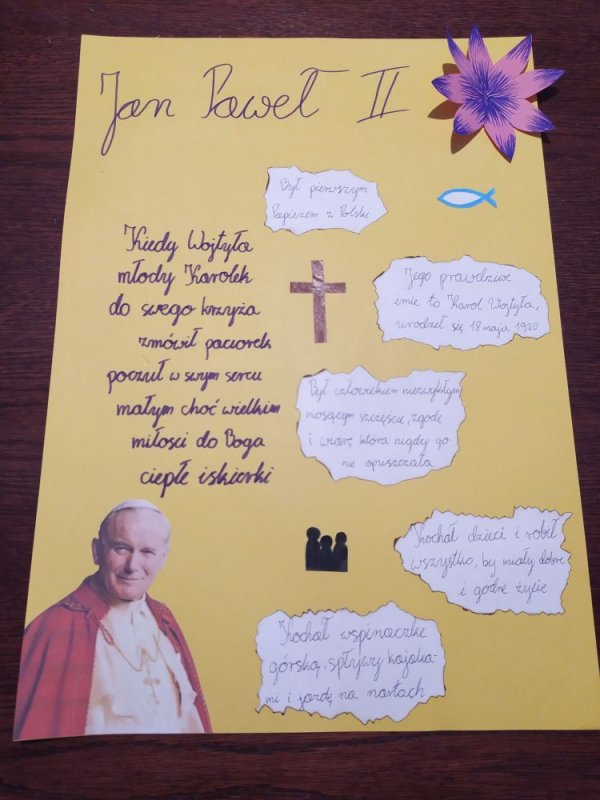 Jan Paweł II
Był pierwszym
Papieżem z Polski
Kiedy Wojtyła
młody Karolek
do swego krzyża
zmówił paciorek
poczuł w swym sercu
małym choć wielkim
miłości do Boga
ciepłe iskierki
Jego prawdziwe
imie to Karol Wojtyła,
urodził się 18 maja 1920
Był człowiekiem niezwykłym,
niosącym szczęście, zgodę
i wiarę która nigdy go
nie opuszczała
Kochał dzieci i robił
wszystko, by miały dobre
i godne życie
Kochał wspinaczkę
górską, spływy kajaka-
mi i jazdę na nartach